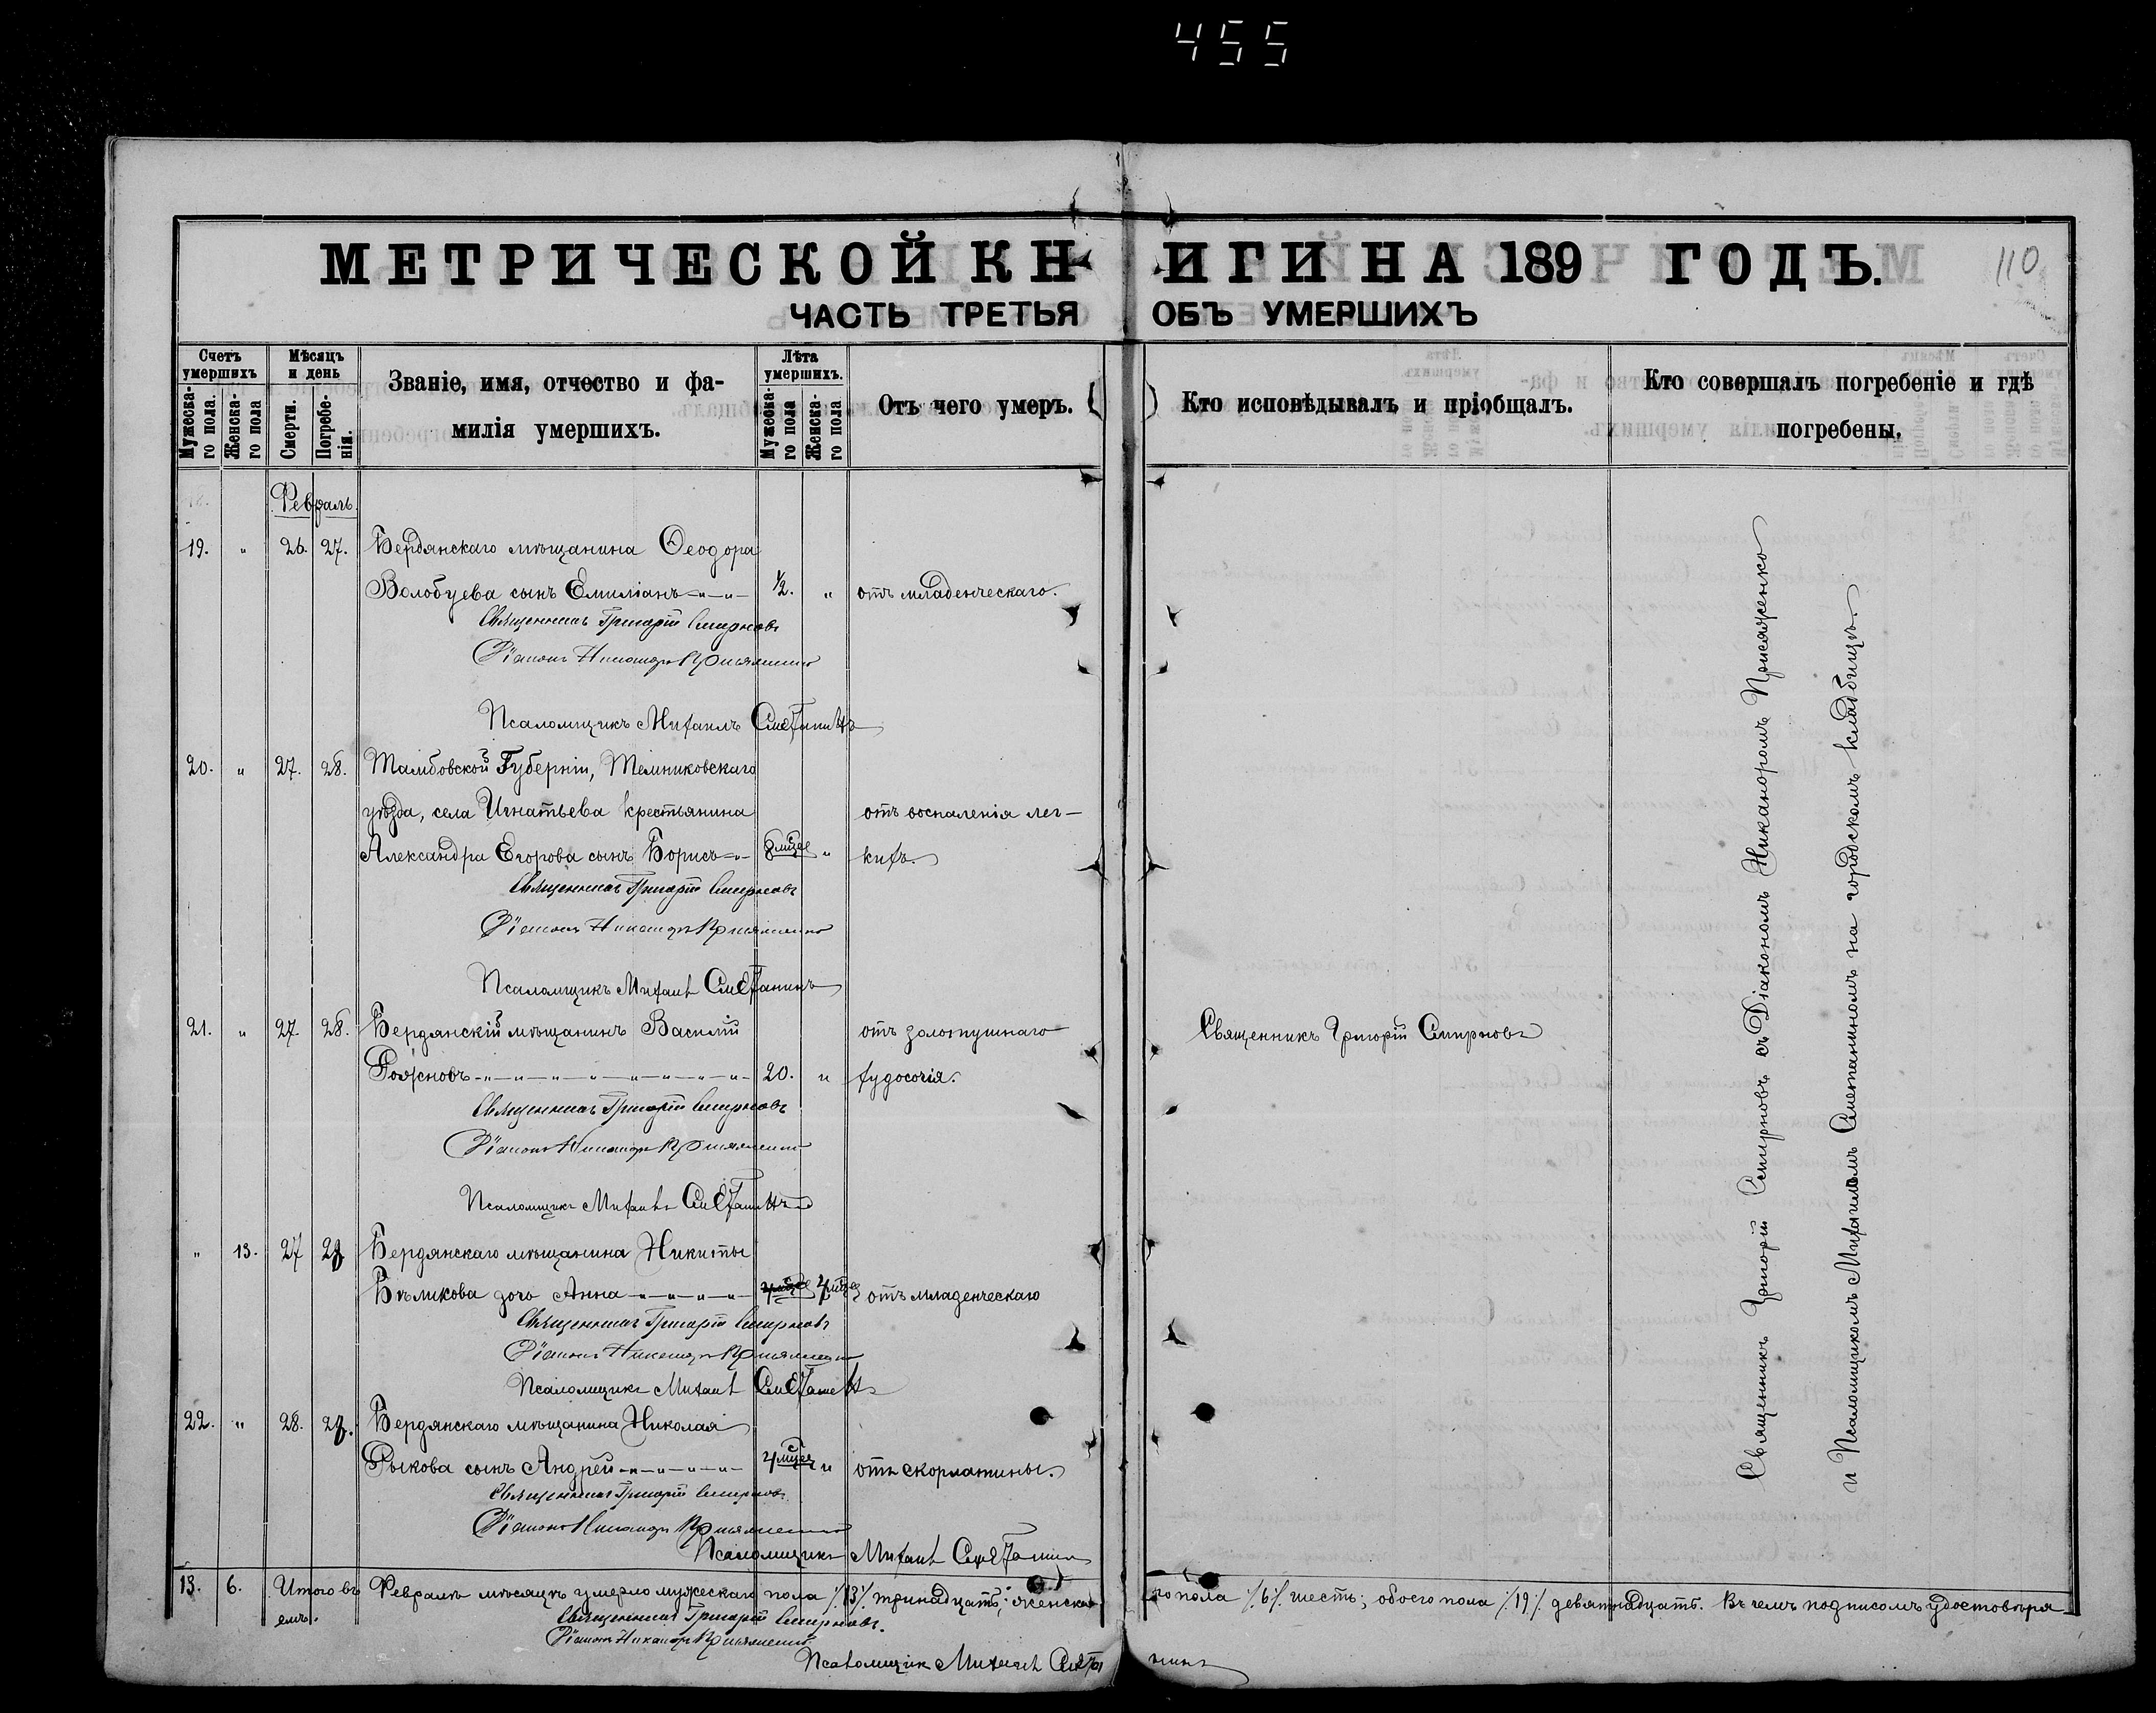 455
МЕТРИЧЕСКОЙ КНИГИ НА 189 ГОДЪ.
110
ЧАСТЬ ТРЕТЬЯ ОБЪ УМЕРШИХЪ
Счетъ умершихъ
Мужеска-го пола.
Женска-го пола
Мѣсяцъ и день
Смерти.
Погребе-нія.
Званіе, имя, отчество и фа-
милія умершихъ.
Лѣта умершихъ.
Мужеска-го пола
Женска-го пола
Отъ чего умеръ.
Кто исповѣдывалъ и пріобщалъ.
Кто совершалъ погребеніе и гдѣ
погребены.
Февраль
19. " 26. 27. Бердянскаго мѣщанина Ѳеодора
Волобуева сынъ Емиліанъ 1/2. " отъ младенческаго.
Священникъ Григорій Смирновъ
Діаконъ Никаноръ Присяженко
Псаломщикъ Михаилъ Сметанинъ
20. " 27. 28. Тамбовской Губерніи, Темниковскаго
уѣзда, села Игнатьева крестьянина отъ воспаленія лег-
Александра Егорова сынъ Борисъ 8 мѣсе " кихъ.
Священникъ Григорій Смирновъ
Діаконъ Никаноръ Присяженко
Псаломщикъ Михаилъ Сметанинъ
21. " 27. 28. Бердянскій мѣщанинъ Василій отъ золотушнаго
Рояжновъ 20. " худосочія.
Священникъ Григорій Смирновъ
Священникъ Григорій Смирновъ
Діаконъ Никаноръ Присяженко
Псаломщикъ Михаилъ Сметанинъ
" 13. 27 28 Бердянскаго мѣщанина Никиты
Бѣликова дочь Анна 4 мѣсе отъ младенческаго
Священникъ Григорій Смирновъ
Діаконъ Никаноръ Присяженко
Псаломщикъ Михаилъ Сметанинъ
22. " 28. Бердянскаго мѣщанина Николая
Рыкова сынъ Андрей 4 мѣсец " отъ скорлатины.
Священникъ Григорій Смирновъ
Діаконъ Никаноръ Присяженко
Псаломщикъ Михаилъ Сметанинъ
Священникъ Григорій Смирновъ съ Діакономъ Никаноромъ Присяженко
и Псаломщикомъ Михаиломъ Сметанинымъ на городскомъ кладбищѣ.
13. 6. Итого въ Февралѣ мѣсяцѣ умерло мужескаго пола /13/ тринадцать; женска-го пола /6/ шесть; обоего пола /19/ девятнадцать. Въ чемъ подписомъ удостовѣря-
емъ.
Священникъ Григорій Смирновъ.
Діаконъ Никаноръ Присяженко
Псаломщик Михаилъ Сметанинъ